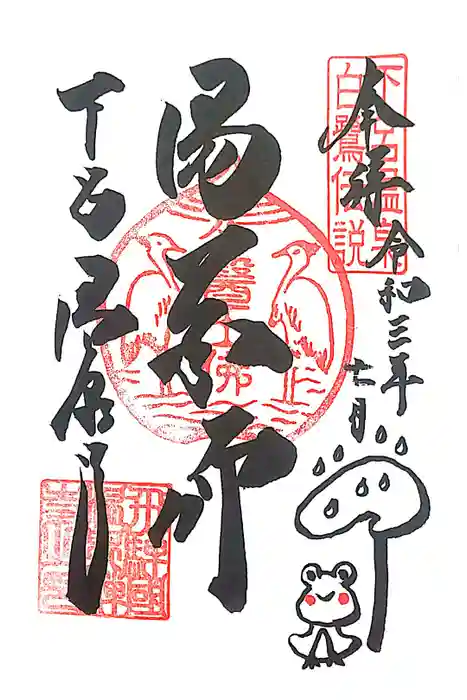 下呂温泉
白鷺伝説
奉拝 令和三年
七月
湯薬師
醫王佛
下呂温泉寺